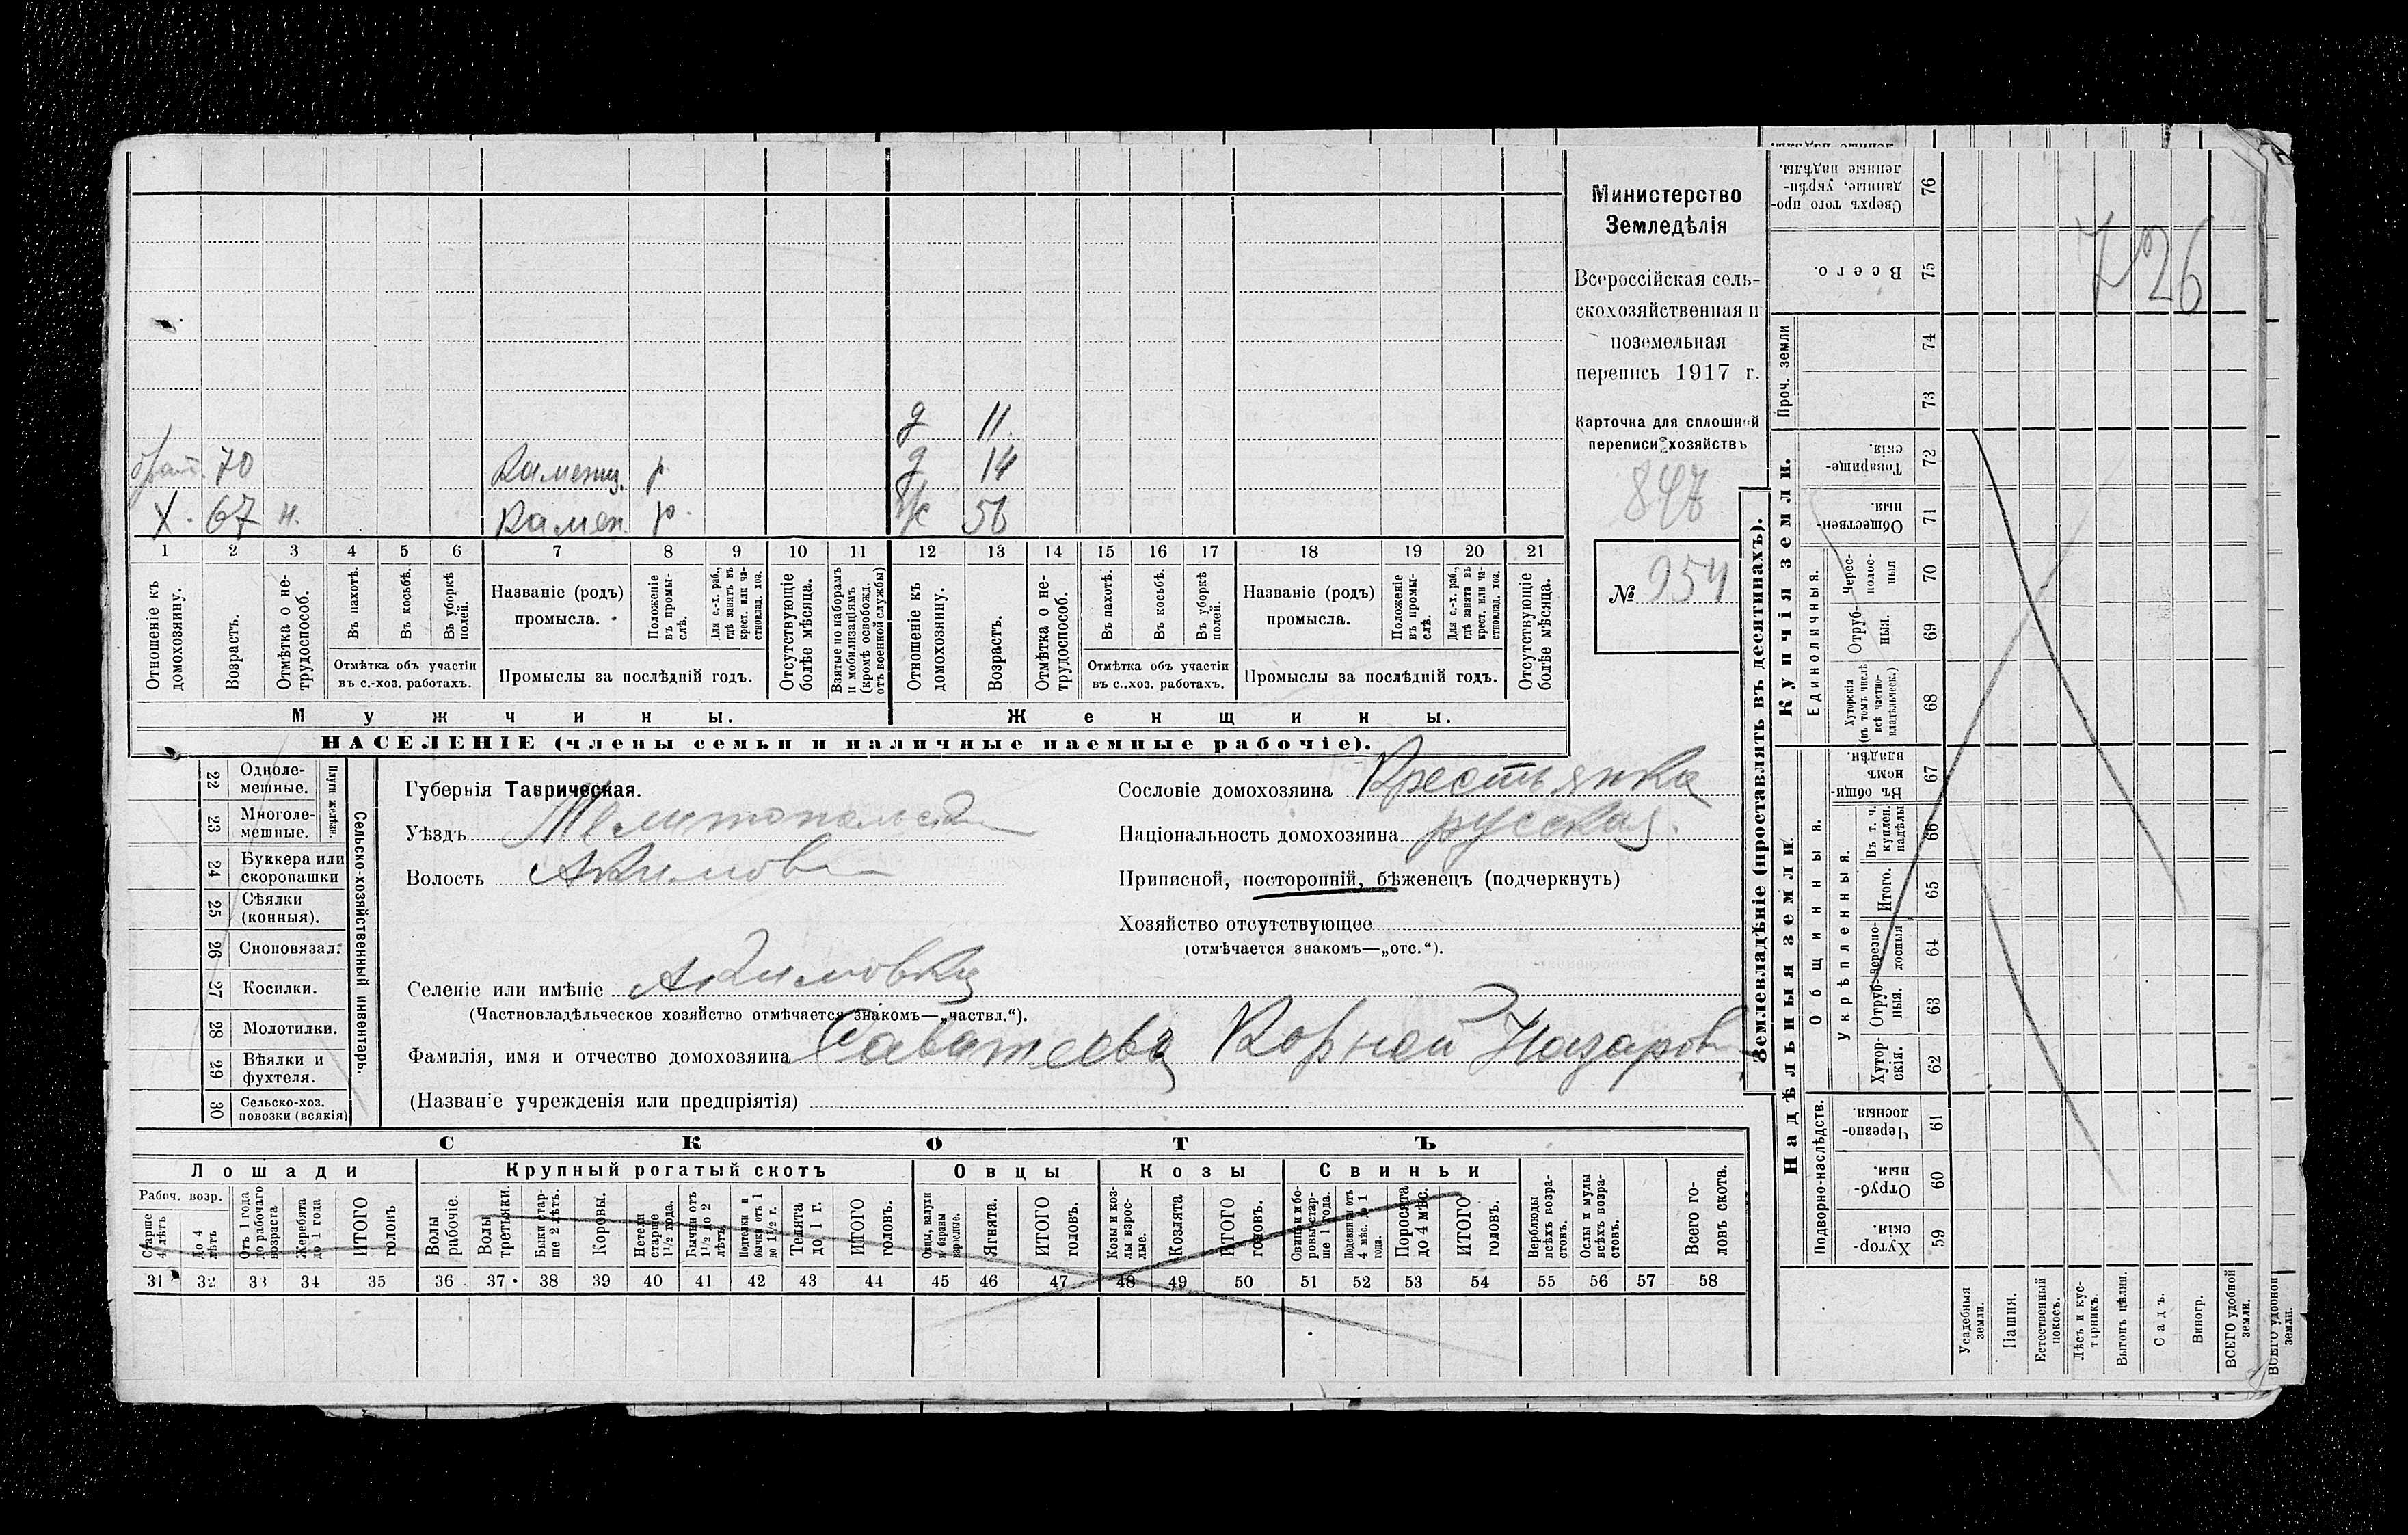 Министерство
Земледѣлія
Всероссійская сель-
скохозяйственная и
поземельная
перепись 1917 г.
Карточка для сплошной
переписи хозяйствъ
847
№ 954
726
д 11.
брат. 70 Каменщ. р д 14
Х. 67 н. Камен. р. ж 56
1 2 3 4 5 6 7 8 9 10 11 12 13 14 15 16 17 18 19 20 21
Отношеніе къ домохозяину.
Возрастъ.
Отмѣтка о не-трудоспособ.
Въ пахотѣ.
Въ косьбѣ.
Въ уборкѣ полей.
Отмѣтка объ участіи въ с.-хоз. работахъ.
Названіе (родъ) промысла.
Положеніе въ промы-слѣ.
Для с.-х. раб., гдѣ занятъ въ крест. или ча-стновлад. хоз.
Промыслы за послѣдній годъ.
Отсутствующіе болѣе мѣсяца.
Взятые по наборамъ и мобилизаціямъ (кромѣ освобожд. отъ военной службы)
Отношеніе къ домохозяину.
Возрастъ.
Отмѣтка о не-трудоспособ.
Въ пахотѣ.
Въ косьбѣ.
Въ уборкѣ полей.
Отмѣтка объ участіи въ с.-хоз. работахъ.
Названіе (родъ) промысла.
Положеніе въ промы-слѣ.
Для с.-х. раб., гдѣ занята въ крест. или ча-стновлад. хоз.
Промыслы за послѣдній годъ.
Отсутствующіе болѣе мѣсяца.
Мужчины. Женщины.
НАСЕЛЕНІЕ (члены семьи и наличные наемные рабочіе).
22 Одноле-мешные.
23 Многоле-мешные.
Плуги желѣзн.
24 Буккера или скоропашки
25 Сѣялки (конныя).
26 Сноповязал.
27 Косилки.
28 Молотилки.
29 Вѣялки и фухтеля.
30 Сельско-хоз. повозки (всякія)
Сельско-хозяйственный инвентарь.
Губернія Таврическая.
Уѣздъ Мелитопольск
Волость Акимов
Селеніе или имѣніе Акимовка
(Частновладѣльческое хозяйство отмѣчается знакомъ—„частвл.“).
Фамилія, имя и отчество домохозяина Саватеевъ Корней Назаров
(Названіе учрежденія или предпріятія)
Сословіе домохозяина Крестьянка
Національность домохозяина русская.
Приписной, посторонній, бѣженецъ (подчеркнуть)
Хозяйство отсутствующее
(отмѣчается знакомъ—„отс.“).
СКОТЪ
Лошади Крупный рогатый скотъ Овцы Козы Свиньи
Рабоч. возр.
Старше 4 лѣтъ
до 4 лѣтъ
Отъ 1 года до рабочаго возраста
Жеребята до 1 года
ИТОГО головъ
Волы рабочіе.
Волы третьяки.
Быки стар-ше 2 лѣтъ.
Коровы.
Нетели старше 1½ года.
Бычки отъ 1½ до 2 лѣтъ.
Подтелки и бычки отъ 1 до 1½ г.
Телята до 1 г.
ИТОГО головъ.
Овцы, валухи и бараны взрослые.
Ягнята.
ИТОГО головъ.
Козы и коз-лы взрос-лые.
Козлята
ИТОГО головъ.
Свиньи и бо-ровы стар-ше 1 года.
Подсвинки отъ 4 мѣс. до 1 года.
Поросята до 4 мѣс.
ИТОГО головъ.
Верблюды всѣхъ возра-стовъ.
Ослы и мулы всѣхъ возра-стовъ.
Всего го-ловъ скота.
31 32 33 34 35 36 37 38 39 40 41 42 43 44 45 46 47 48 49 50 51 52 53 54 55 56 57 58
Землевладѣніе (проставлять въ десятинахъ).
Надѣльныя земли
Подворно-наслѣдств.
Хутор-скія. 59
Отруб-ныя. 60
Черезпо-лосныя. 61
Общинныя.
Укрѣпленныя.
Хутор-скія. 62
Отруб-ныя. 63
Черезпо-лосныя 64
Итого. 65
Въ т. ч. куплен. надѣлы 66
Въ общи-номъ владѣн. 67
Купчія земли.
Единоличныя.
Хуторскія (въ томъ числѣ всѣ частно-владѣльческ.) 68
Отруб-ныя. 69
Черес-полос-ныя 70
Обществен-ныя. 71
Товарище-скія. 72
Проч. земли
73
74
Всего. 75
Сверхъ того про-данные, укрѣп-ленные надѣлы. 76
Усадебныя земли.
Пашня.
Естественный покосъ.
Лѣсъ и кус-тарникъ.
Выгонъ цѣлин.
Садъ.
Виногр.
ВСЕГО удобной земли.
ВСЕГО удобной земли.